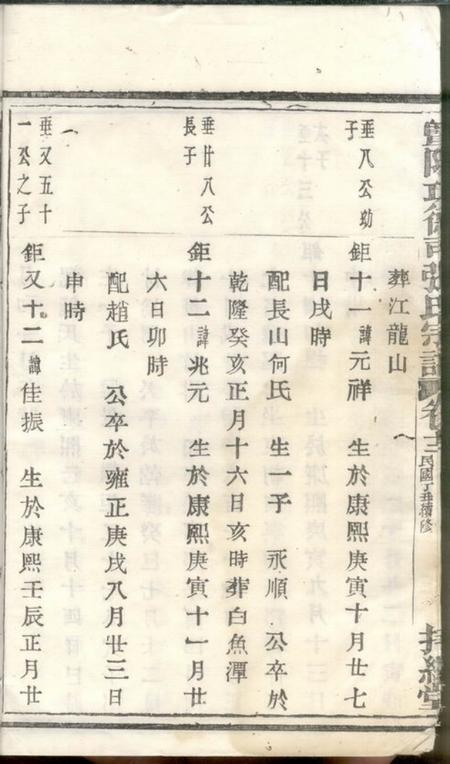 葬江龍山
垂八公幼子
鉅十一諱元祥 生於康熙庚寅十月廿七
日戌時
配長山何氏 生一子 永順 公卒於
乾隆癸亥正月十六日亥時葬白魚潭
垂廿八公長子
鉅十二諱兆元 生於康熙庚寅十一月廿
六日卯時
配趙氏 公卒於雍正庚戌八月廿三日
申時
垂又五十一公之子
鉅又十二諱佳振 生於康熙壬辰正月廿
張氏宗譜
民國丁
續修